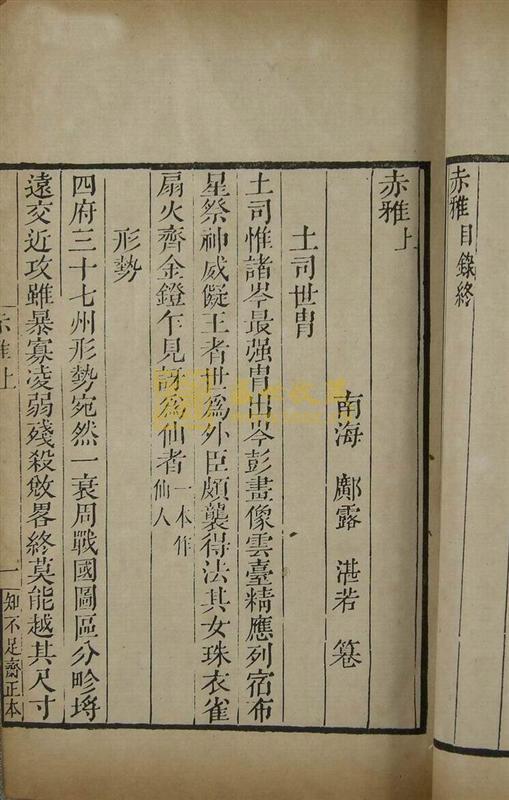 赤雅目錄終
赤雅上
南海 鄺露 湛若 纂
土司世冑
土司惟諸岑最强冑出岑彭畫像雲臺精應列宿布
星祭神威儗王者世爲外臣頗襲得法其女珠衣雀
扇火齊金鐙乍見訝爲仙者一本作仙人
形勢
四府三十七州形勢宛然一衰周戰國圖區分畛埒
遠交近攻雖暴寡凌弱殘殺攽畧終莫能越其尺寸
赤雅上
一
知不足齋正本